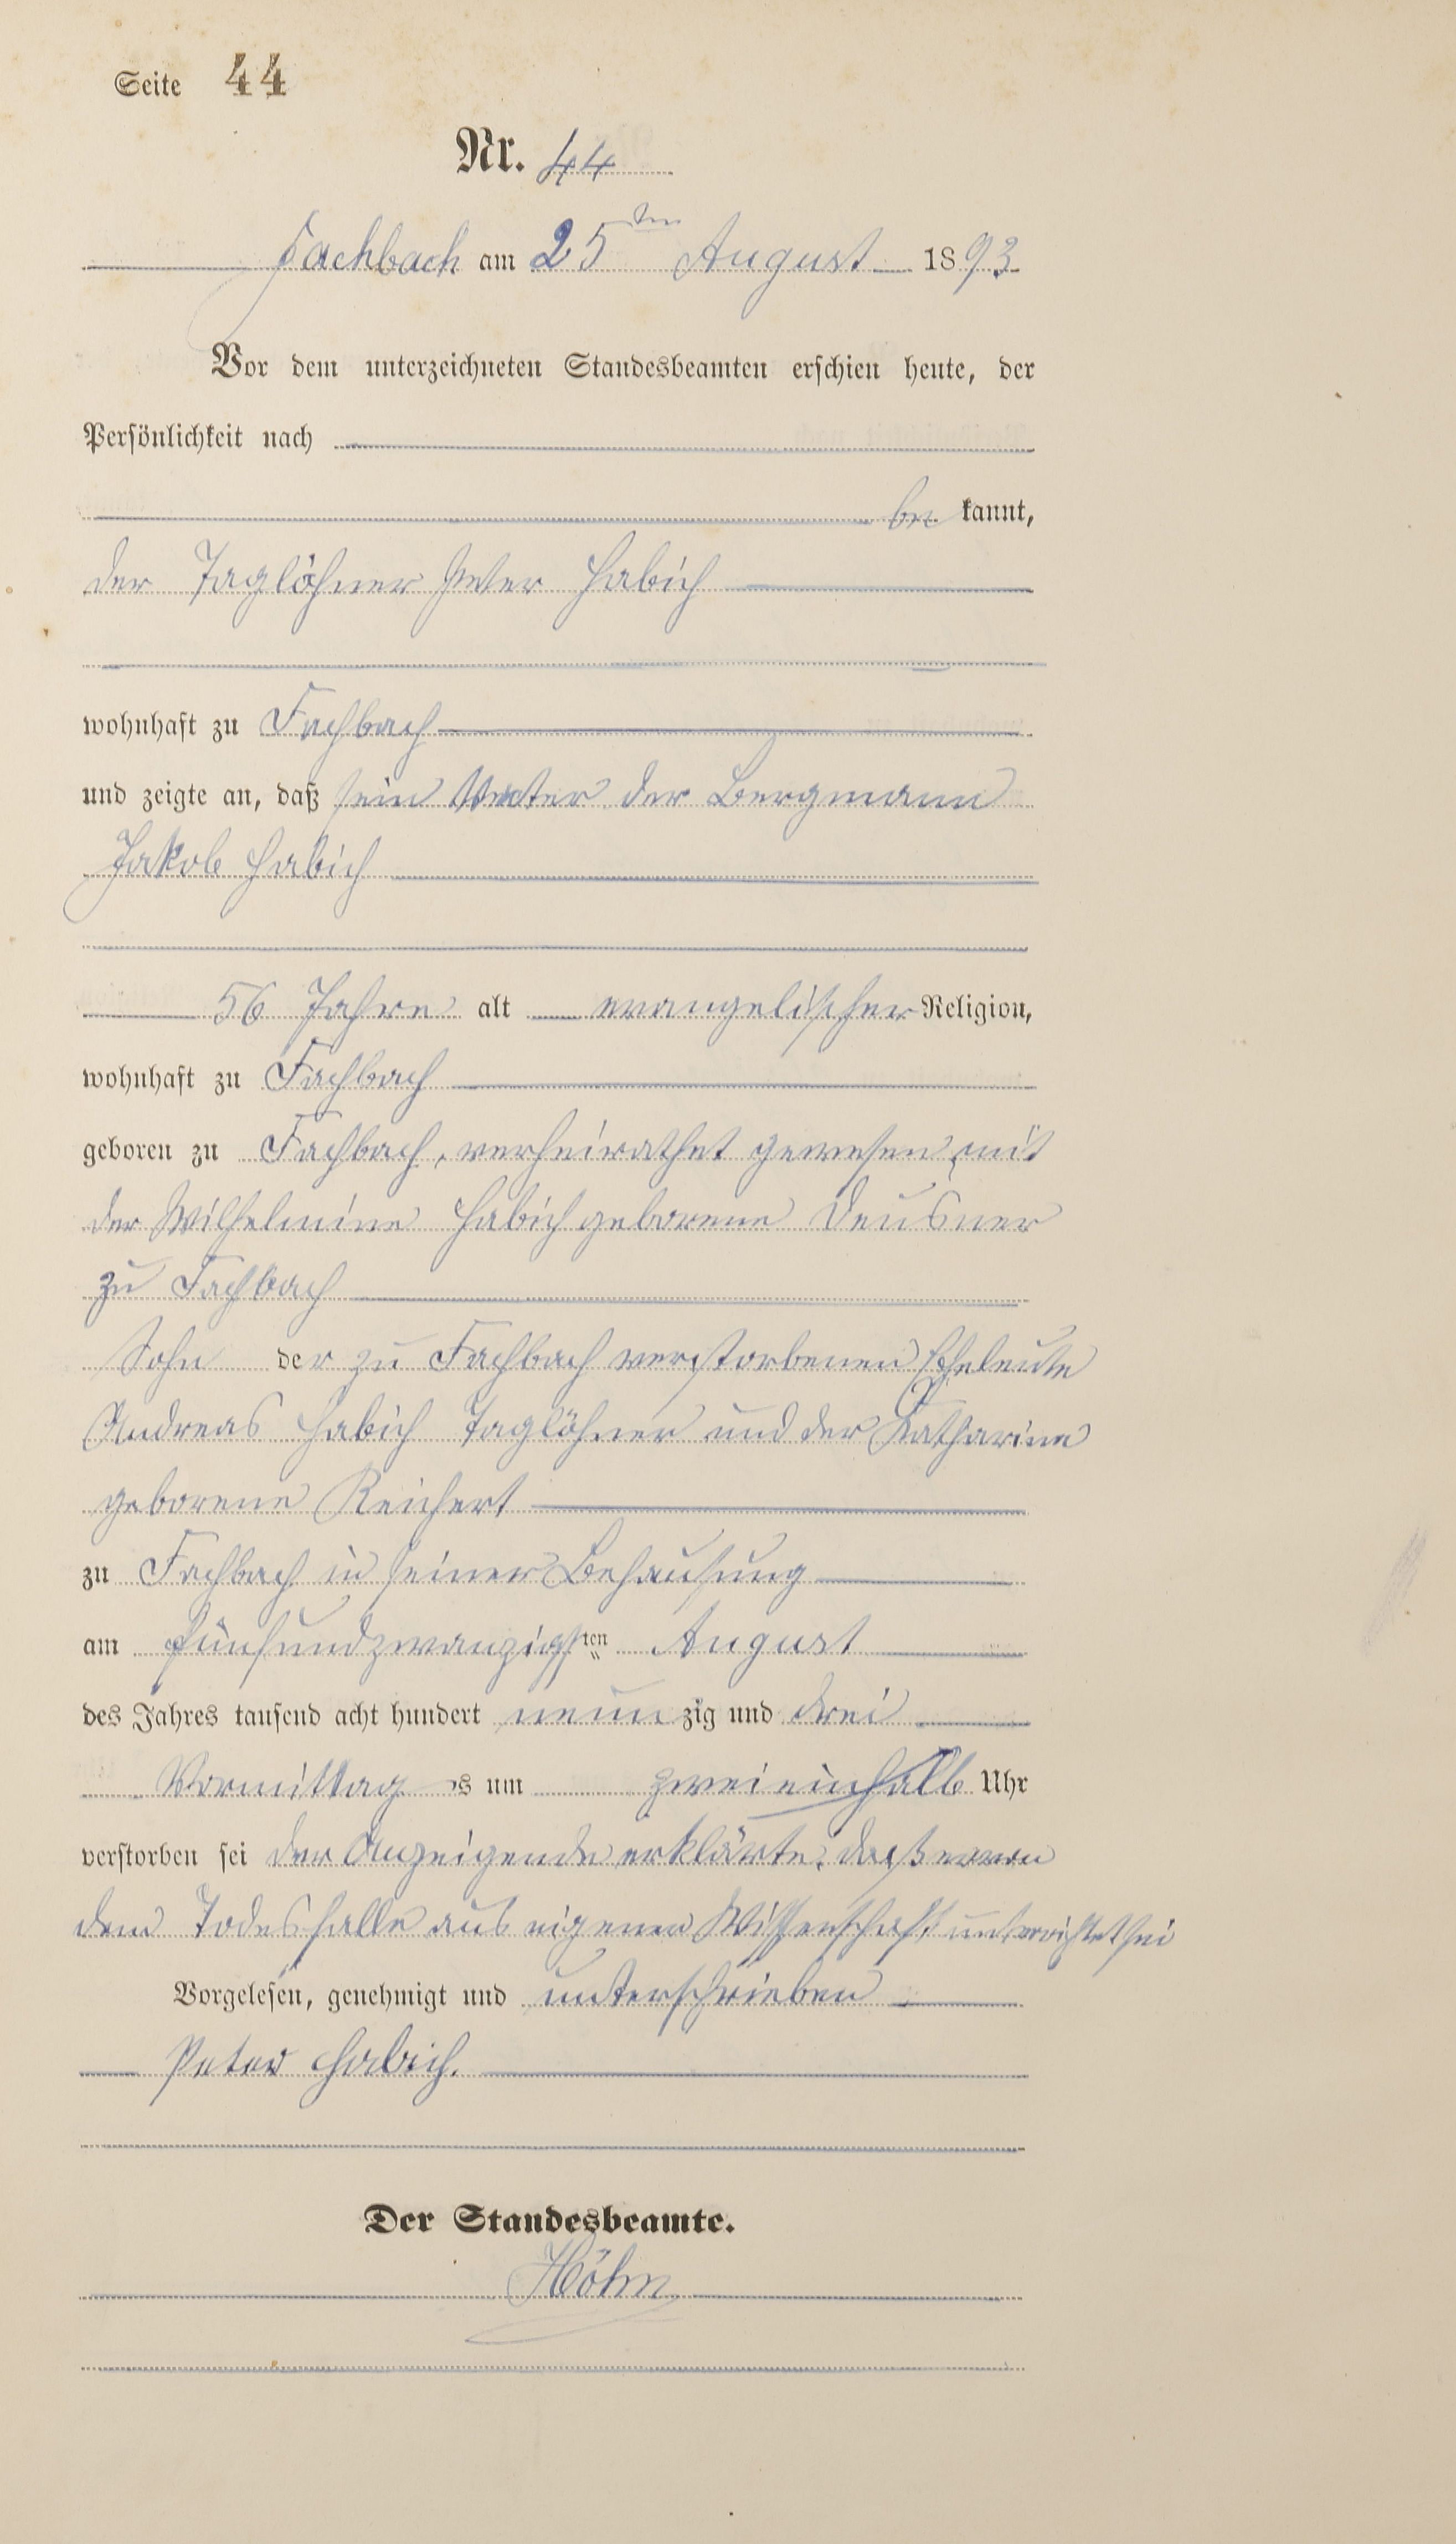 Seite 44
Nr. 44
Fachbach am 25ten August 1893
Vor dem unterzeichneten Standesbeamten erschien heute, der
Persönlichkeit nach
be kannt,
der Taglöhner Peter Habich
wohnhaft zu Fachbach
und zeigte an, daß sein Vater der Bergmann
Jakob Habich
56 Jahre alt evangelischer Religion,
wohnhaft zu Fachbach
geboren zu Fachbach, verheirathet gewesen mit
der Wilhelmine Habich geborene Deusner
zu Fachbach
Sohn der zu Fachbach verstorbenen Eheleute
Andreas Habich Taglöhner und der Katharina
geborene Reichert
zu Fachbach in seiner Behausung
am fünfundzwanzigsten August
des Jahres tausend acht hundert neun zig und drei
Vormittag s um zweieinhalb Uhr
verstorben sei der Anzeigende erklärte, daß er von
dem Todesfalle aus eigener Wissenschaft unterrichtet sei
Vorgelesen, genehmigt und unterschrieben
Peter Habich.
Der Standesbeamte.
Höhn